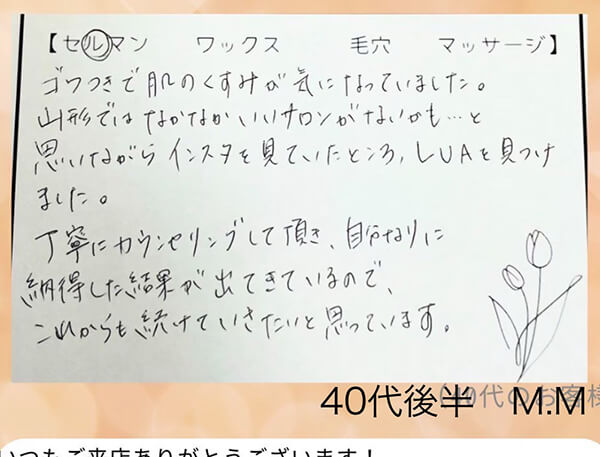 【セルマン　ワックス　毛穴　マッサージ】
ゴワつきで肌のくすみが気になっていました。
山形ではなかなかいいサロンがないかも…と
思いながらインスタを見ていたところ、LUAを見つけ
ました。
丁寧にカウンセリングして頂き、自分なりに
納得した結果が出てきているので、
これからも続けていきたいと思っています。
40代後半　M.M
(40代のお客様
いつもご来店ありがとうございます！